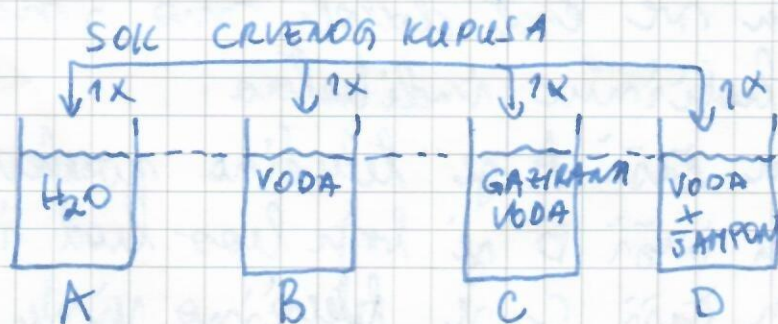 SOK CRVENOG KUPUSA
1X 1X 1X 1X
H₂O VODA GAZIRANA VODA
VODA + ŠAMPON
A B C D